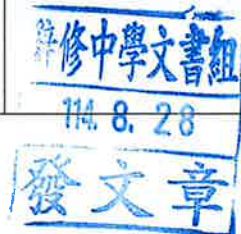 辭修中學文書組
114. 8. 28
發文章